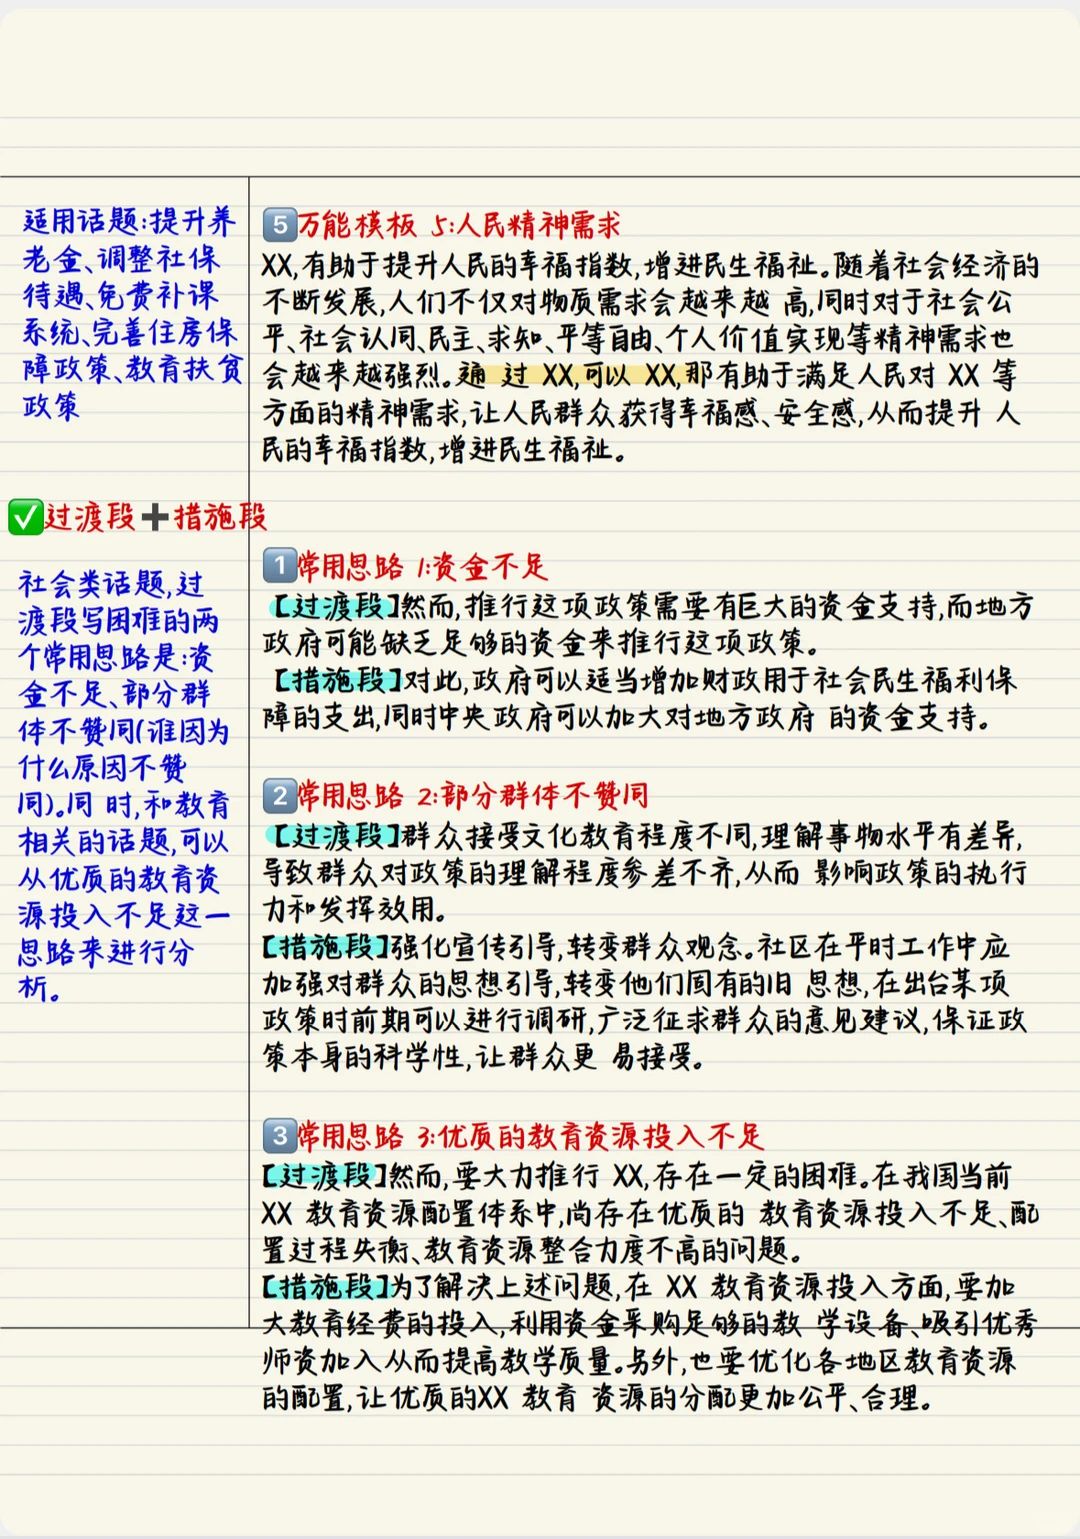 适用话题:提升养
老金、调整社保
待遇、免费补课
系统、完善住房保
障政策、教育扶贫
政策
5万能模板 5:人民精神需求
XX,有助于提升人民的幸福指数,增进民生福祉。随着社会经济的
不断发展,人们不仅对物质需求会越来越 高,同时对于社会公
平、社会认同、民主、求知、平等自由、个人价值实现等精神需求也
会越来越强烈。通 过 XX,可以 XX,那有助于满足人民对 XX 等
方面的精神需求,让人民群众获得幸福感、安全感,从而提升 人
民的幸福指数,增进民生福祉。
✅过渡段➕措施段
社会类话题,过
渡段写困难的两
个常用思路是:资
金不足、部分群
体不赞同(谁因为
什么原因不赞
同)。同 时,和教育
相关的话题,可以
从优质的教育资
源投入不足这一
思路来进行分
析。
1常用思路 1:资金不足
【过渡段】然而,推行这项政策需要有巨大的资金支持,而地方
政府可能缺乏足够的资金来推行这项政策。
【措施段】对此,政府可以适当增加财政用于社会民生福利保
障的支出,同时中央政府可以加大对地方政府 的资金支持。
2常用思路 2:部分群体不赞同
【过渡段】群众接受文化教育程度不同,理解事物水平有差异,
导致群众对政策的理解程度参差不齐,从而 影响政策的执行
力和发挥效用。
【措施段】强化宣传引导,转变群众观念。社区在平时工作中应
加强对群众的思想引导,转变他们固有的旧 思想,在出台某项
政策时前期可以进行调研,广泛征求群众的意见建议,保证政
策本身的科学性,让群众更 易接受。
3常用思路 3:优质的教育资源投入不足
【过渡段】然而,要大力推行 XX,存在一定的困难。在我国当前
XX 教育资源配置体系中,尚存在优质的 教育资源投入不足、配
置过程失衡、教育资源整合力度不高的问题。
【措施段】为了解决上述问题,在 XX 教育资源投入方面,要加
大教育经费的投入,利用资金采购足够的教 学设备、吸引优秀
师资加入从而提高教学质量。另外,也要优化各地区教育资源
的配置,让优质的XX 教育 资源的分配更加公平、合理。